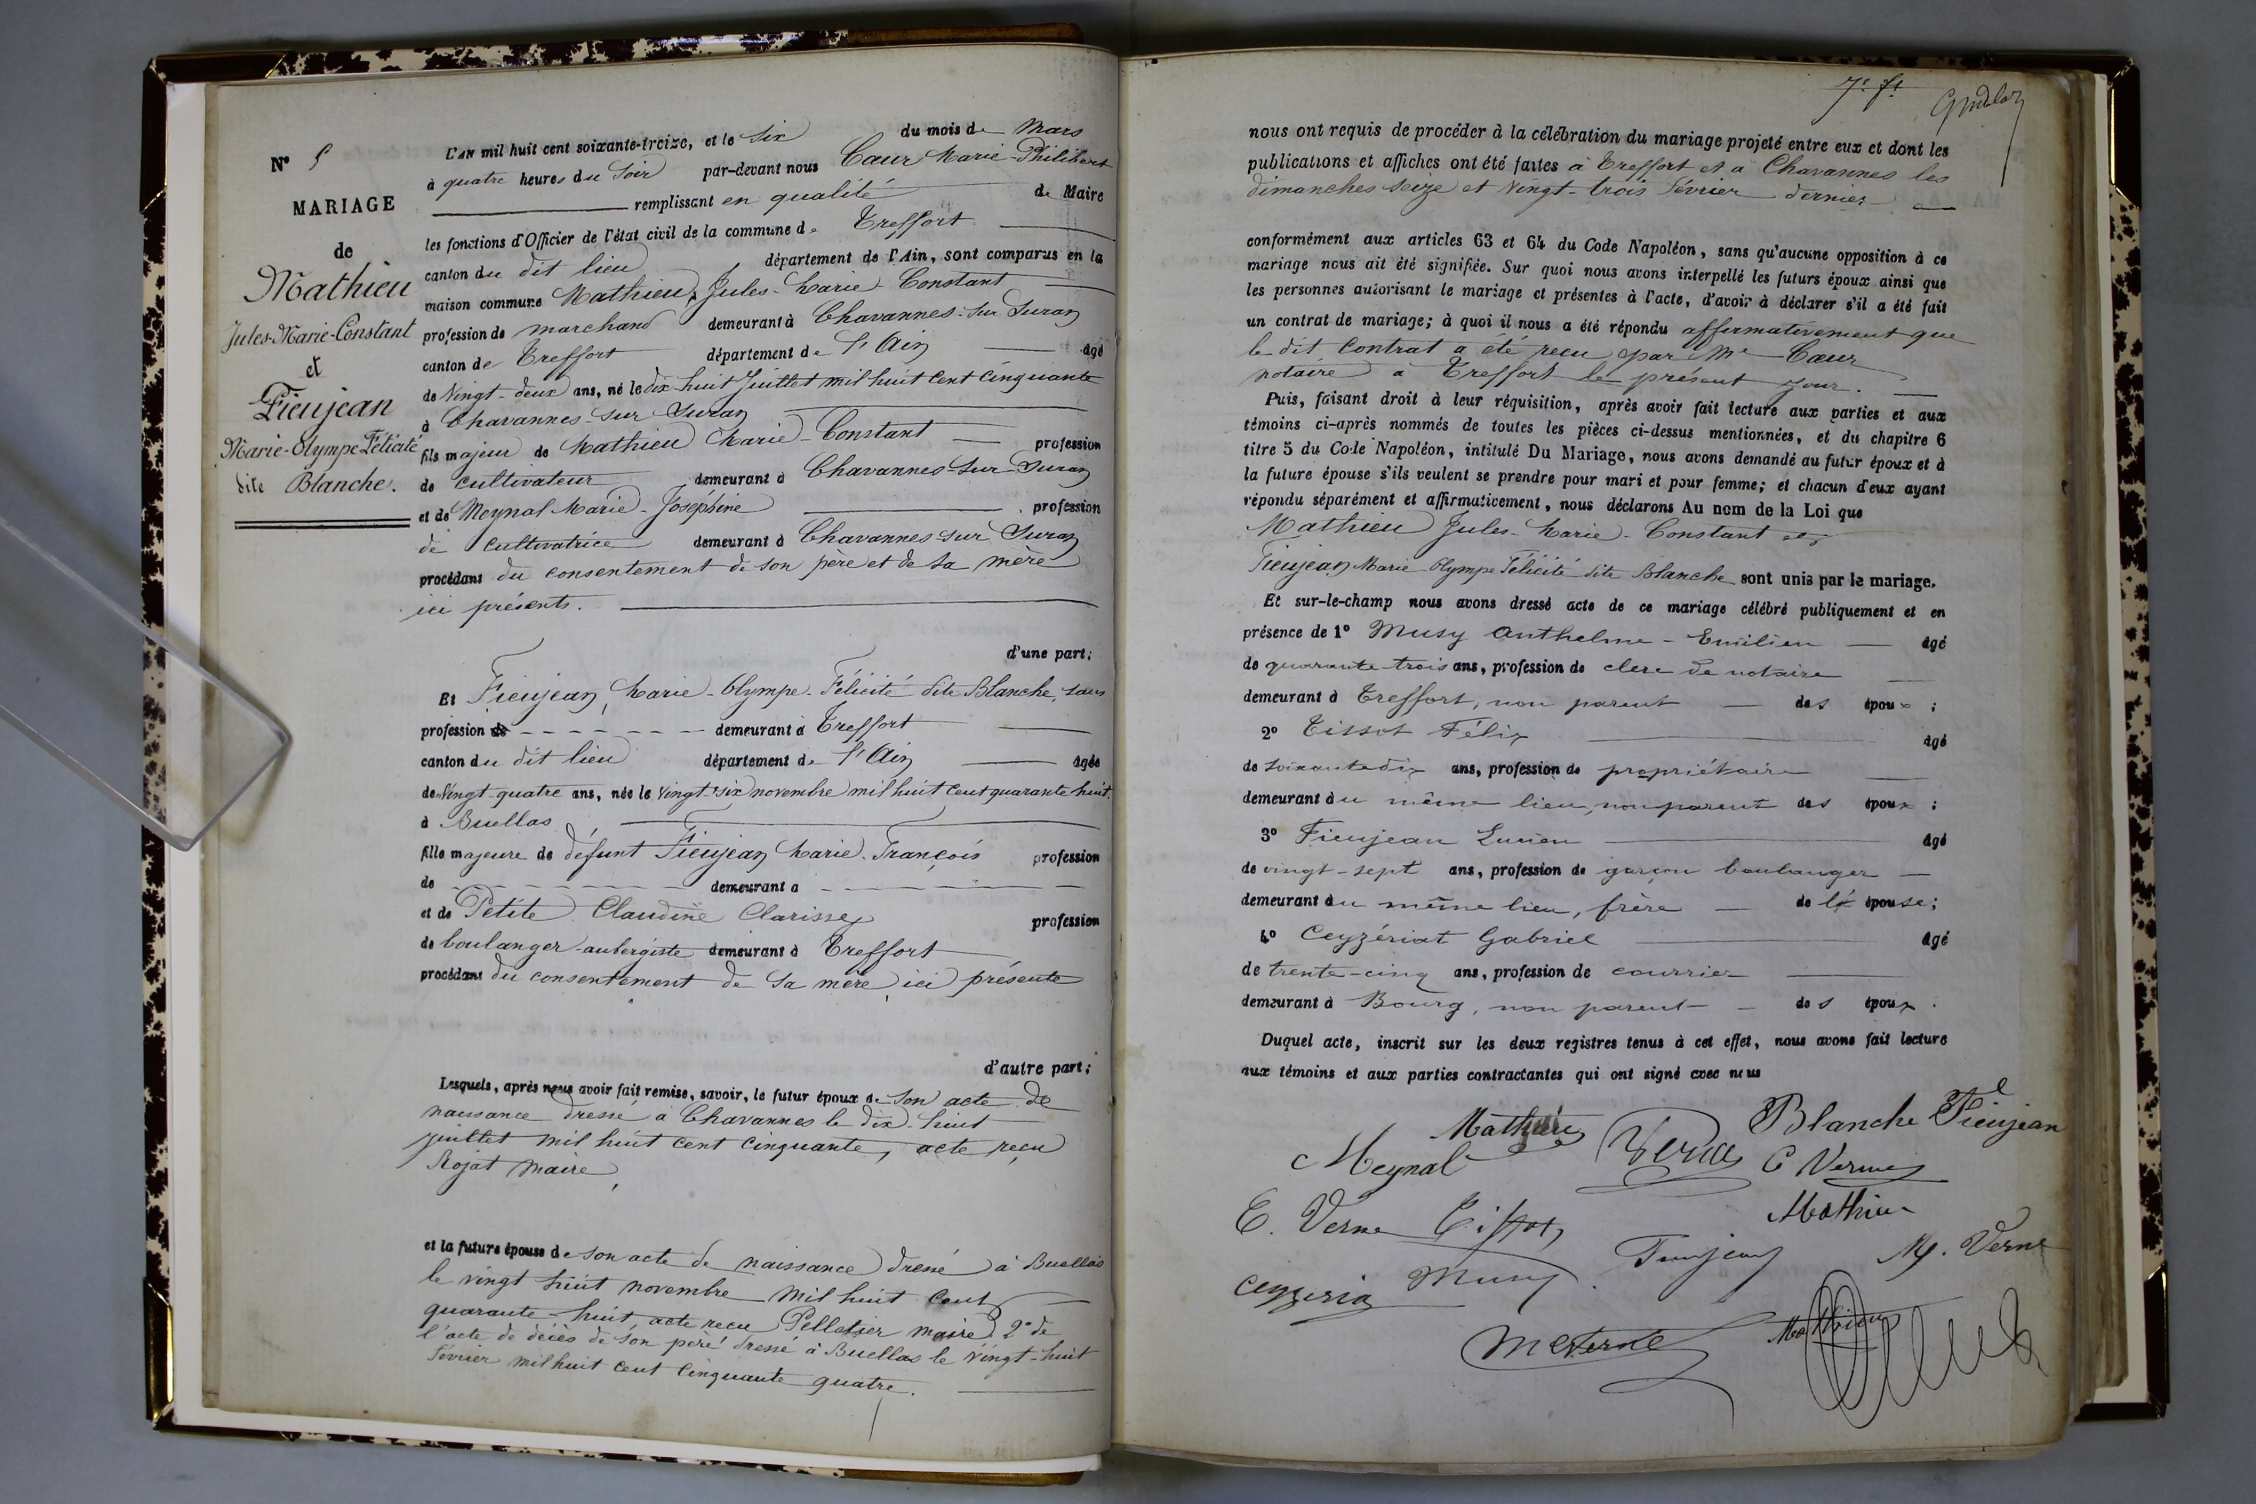 N° 5
MARIAGE
de
Mathieu
Jules-Marie-Constant
et
Fieujean
Marie-Olympe Félicité
dite Blanche.
L'AN mil huit cent soixante-treize, et le six du mois de Mars
à quatre heures du Soir par-devant nous Cœur Marie-Philibert
remplissant en qualité de Maire
les fonctions d'Officier de l'état civil de la commune de Treffort
canton du dit lieu département de l'Ain, sont comparus en la
maison commune Mathieu, Jules-Marie-Constant
profession de marchand demeurant à Chavannes-sur Suran
canton de Treffort département de l'Ain âgé
de Vingt-deux ans, né le dix huit Juillet mil huit cent cinquante
à Chavannes-sur Suran
fils majeur de Mathieu Marie-Constant profession
de cultivateur demeurant à Chavannes-sur-Suran
et de Meynal Marie-Joséphine profession
de cultivatrice demeurant à Chavannes-sur Suran
procédant du consentement de son père et de sa mère
ici présents.
d'une part;
Et Fieujean, Marie-Olympe-Félicité dite Blanche, sans
profession de demeurant à Treffort
canton du dit lieu département de l'Ain âgée
de Vingt-quatre ans, née le vingt-six novembre mil huit cent quarante huit.
à Buellas
fille majeure de défunt Fieujean Marie-François profession
de demeurant à
et de Petite Claudine Clarisse profession
de boulanger-aubergiste demeurant à Treffort
procédant du consentement de sa mère ici présente
d'autre part;
Lesquels, après nous avoir fait remise, savoir, le futur époux de Son acte de
naissance dressé à Chavannes le dix-huit
juillet mil huit cent cinquante, acte reçu
Rojat maire,
et la future épouse de son acte de naissance dressé à Buellas
le vingt huit novembre mil huit cent
quarante-huit acte reçu Pelletier maire 2° de
l'acte de décès de son père dressé à Buellas le vingt-huit
février mil huit cent cinquante quatre.
7e ft
nous ont requis de procéder à la célébration du mariage projeté entre eux et dont les
publications et affiches ont été faites à Treffort et à Chavannes les
dimanches seize et vingt-trois février dernier
conformément aux articles 63 et 64 du Code Napoléon, sans qu'aucune opposition à ce
mariage nous ait été signifiée. Sur quoi nous avons interpellé les futurs époux ainsi que
les personnes autorisant le mariage et présentes à l'acte, d'avoir à déclarer s'il a été fait
un contrat de mariage; à quoi il nous a été répondu affirmativement que
le dit contrat a été reçu par Me Cœur
notaire à Treffort le présent jour.
Puis, faisant droit à leur réquisition, après avoir fait lecture aux parties et aux
témoins ci-après nommés de toutes les pièces ci-dessus mentionnées, et du chapitre 6
titre 5 du Code Napoléon, intitulé Du Mariage, nous avons demandé au futur époux et à
la future épouse s'ils veulent se prendre pour mari et pour femme; et chacun d'eux ayant
répondu séparément et affirmativement, nous déclarons Au nom de la Loi que
Mathieu Jules-Marie-Constant et
Fieujean Marie-Olympe Félicité dite Blanche sont unis par le mariage.
Et sur-le-champ nous avons dressé acte de ce mariage célébré publiquement et en
présence de 1° Musy Anthelme-Emilien âgé
de quarante-trois ans, profession de clerc de notaire
demeurant à Treffort, non parent des époux;
2° Tissot Félix âgé
de soixante dix ans, profession de propriétaire
demeurant du même lieu, non parent des époux;
3° Fieujean Lucien âgé
de vingt-sept ans, profession de garçon boulanger
demeurant du même lieu, frère de l'épouse;
4° Ceyzériat Gabriel âgé
de trente-cinq ans, profession de courrier
demeurant à Bourg, non parent des époux.
Duquel acte, inscrit sur les deux registres tenus à cet effet, nous avons fait lecture
aux témoins et aux parties contractantes qui ont signé avec nous
Mathieu Blanche Fieujean
Meynal Verne C Verne
E. Verne Tissot Mathieu
Fieujean M. Verne
Musy
Mathieu